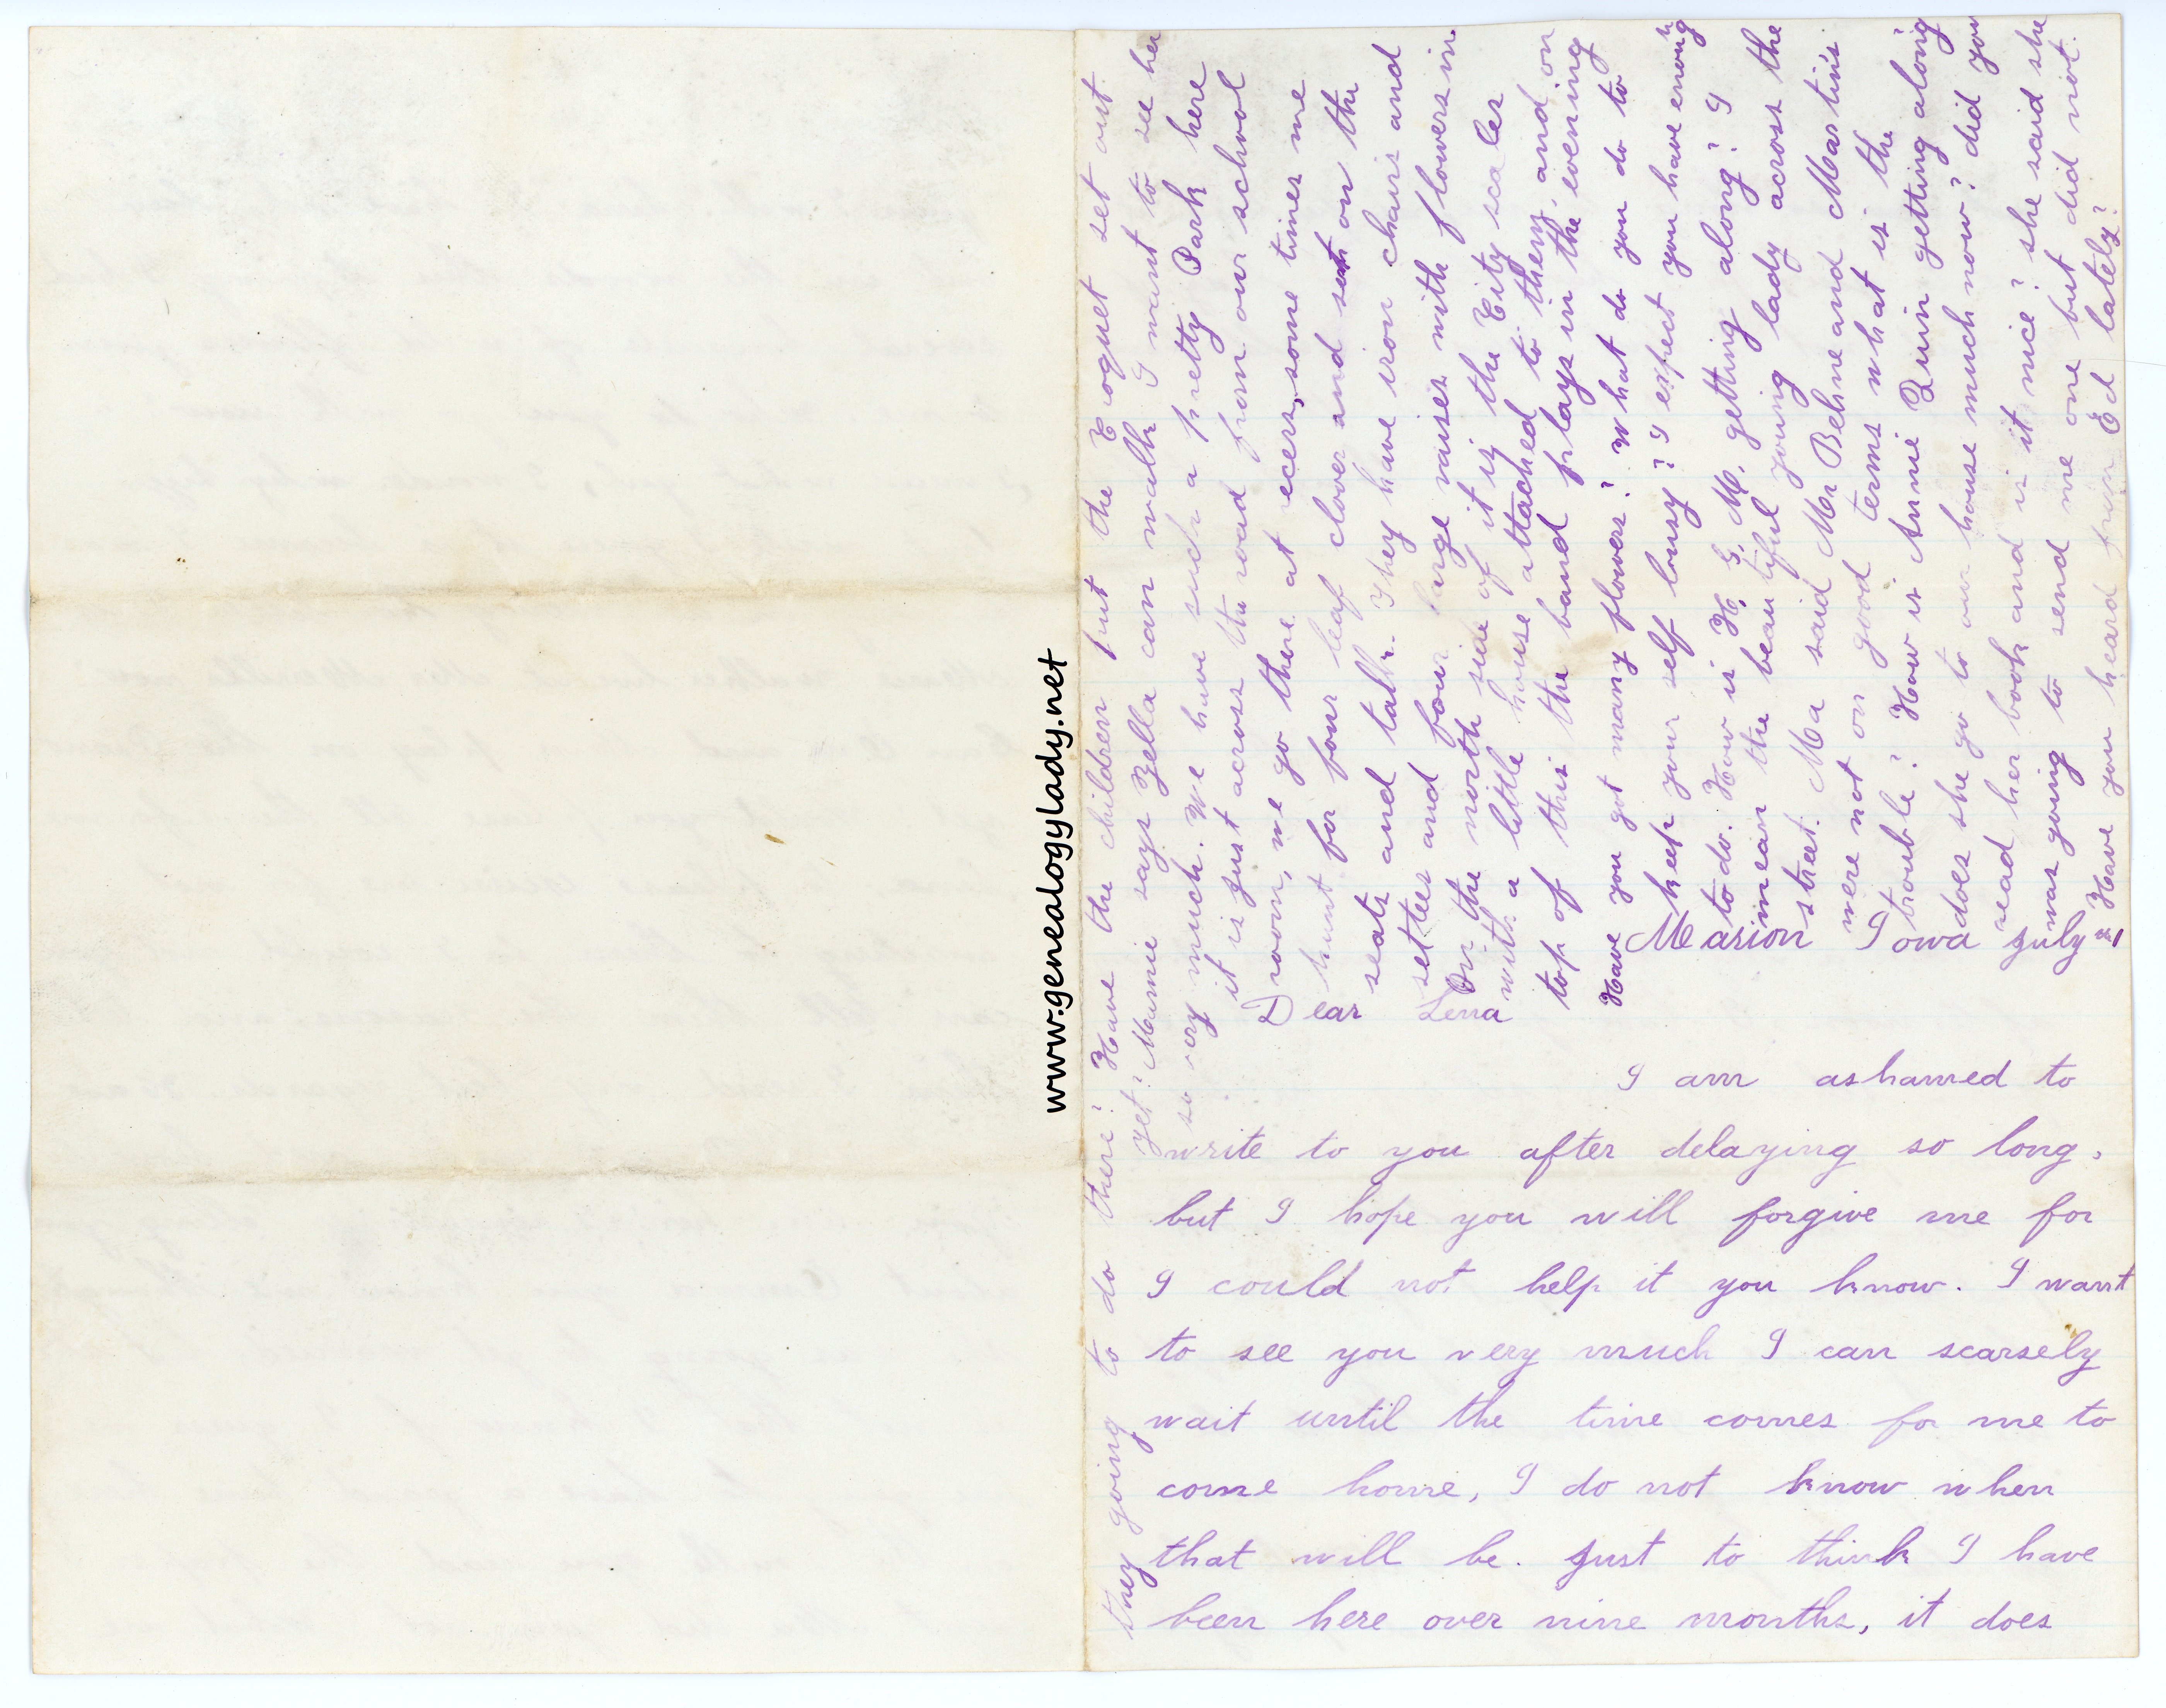 Marion Iowa July 21
Dear Lena
I am ashamed to
write to you after delaying so long,
but I hope you will forgive me for
I could not help it you know. I want
to see you very much I can scarsely
wait until the time comes for me to
come home, I do not know when
that will be. Just to think I have
been here over nine months, it does
they going to do there? Have the children put the Croquet set out
yet? Mamie says Zella can walk I want to see her
so very much. We have such a pretty Park here
it is just across the road from our school
room, we go there at recess, some times we
hunt for four leaf clover and set on the
seats and talk. They have iron chairs and
settees and four large vaises with flowers in
On the north side of it is the City scales
with a little house attached to them, and on
top of this the band plays in the evening
Have you got many flowers? What do you do to
keep your self lousy? I expect you have enough
to do. How is H. G. M. getting along? I
mean the beautiful young lady across the
street. Ma said Mr Behne and Martin's
were not on good terms what is the
trouble? How is Annie Quin getting along
does she go to our house much now? did you
read her book and is it nice? she said she
was going to send me one but did not.
Have you heard from Ed lately?
www.genealogylady.net